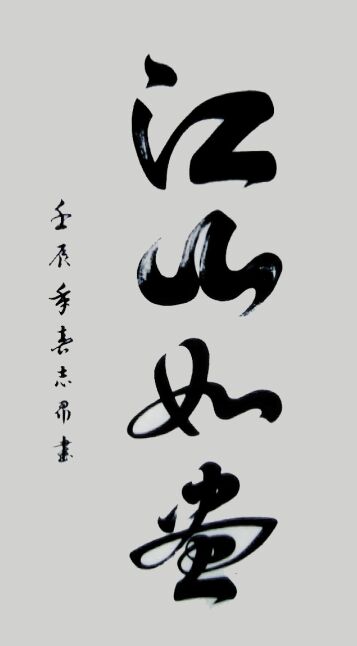 江山如畫
壬辰年袁志昂書